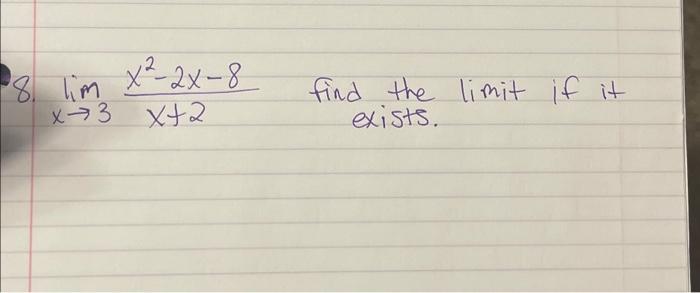 8. lim x→3 (x²-2x-8)/(x+2) find the limit if it
exists.